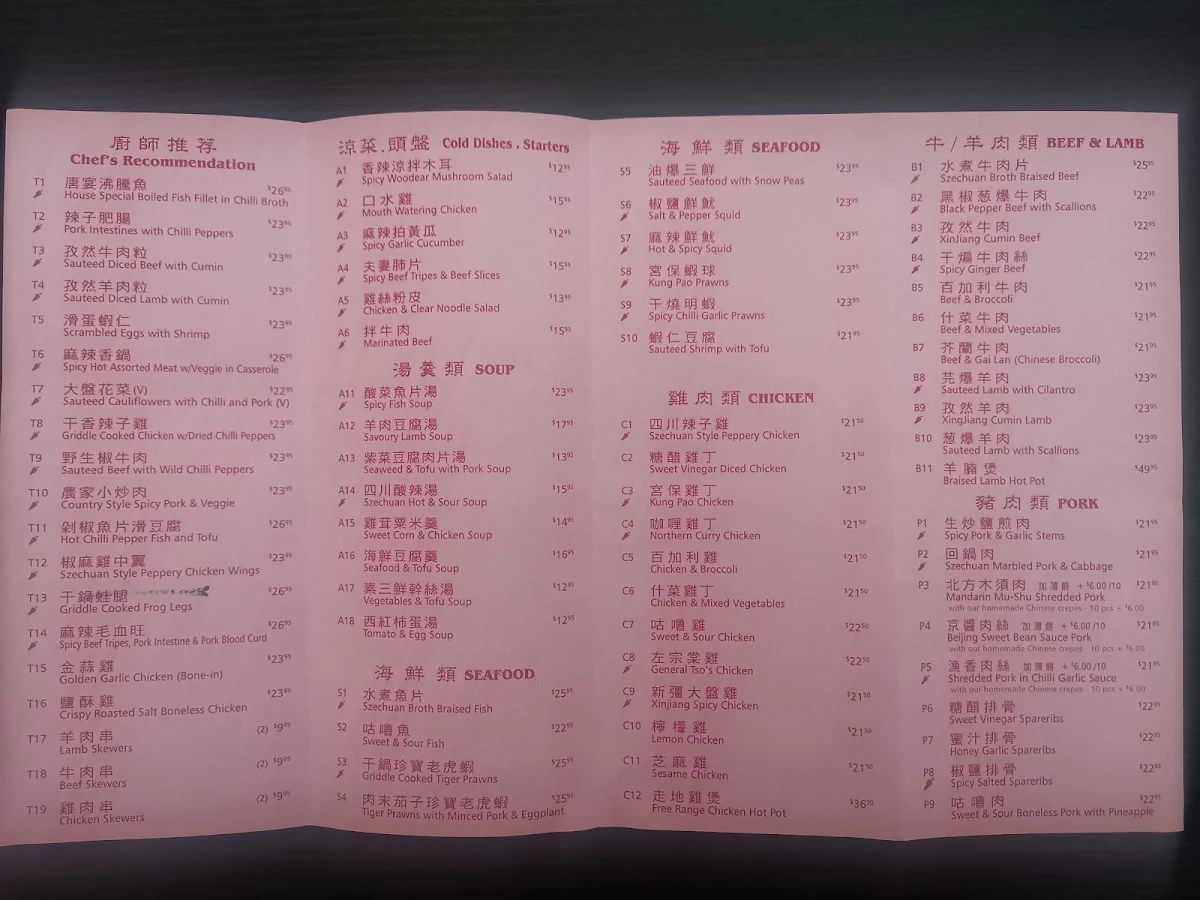 廚師推荐
Chef's Recommendation
T1 唐宴沸騰魚 $26⁹⁵
House Special Boiled Fish Fillet in Chilli Broth
T2 辣子肥腸 $23⁹⁵
Pork Intestines with Chilli Peppers
T3 孜然牛肉粒 $23⁹⁵
Sauteed Diced Beef with Cumin
T4 孜然羊肉粒 $23⁹⁵
Sauteed Diced Lamb with Cumin
T5 滑蛋蝦仁 $23⁹⁵
Scrambled Eggs with Shrimp
T6 麻辣香鍋 $26⁹⁵
Spicy Hot Assorted Meat w/Veggie in Casserole
T7 大盤花菜(V) $22⁹⁵
Sauteed Cauliflowers with Chilli and Pork (V)
T8 干香辣子雞 $23⁹⁵
Griddle Cooked Chicken w/Dried Chilli Peppers
T9 野生椒牛肉 $23⁹⁵
Sauteed Beef with Wild Chilli Peppers
T10 農家小炒肉 $23⁹⁵
Country Style Spicy Pork & Veggie
T11 剁椒魚片滑豆腐 $26⁹⁵
Hot Chilli Pepper Fish and Tofu
T12 椒麻雞中翼 $23⁹⁵
Szechuan Style Peppery Chicken Wings
T13 干鍋蛙腿 $26⁹⁵
Griddle Cooked Frog Legs
T14 麻辣毛血旺 $26⁹⁵
Spicy Beef Tripes, Pork Intestine & Pork Blood Curd
T15 金蒜雞 $23⁹⁵
Golden Garlic Chicken (Bone-in)
T16 鹽酥雞 $23⁹⁵
Crispy Roasted Salt Boneless Chicken
T17 羊肉串 (2) $9⁹⁵
Lamb Skewers
T18 牛肉串 (2) $9⁹⁵
Beef Skewers
T19 雞肉串 (2) $9⁹⁵
Chicken Skewers
涼菜.頭盤 Cold Dishes . Starters
A1 香辣涼拌木耳 $12⁹⁵
Spicy Woodear Mushroom Salad
A2 口水雞 $15⁹⁵
Mouth Watering Chicken
A3 麻辣拍黃瓜 $12⁹⁵
Spicy Garlic Cucumber
A4 夫妻肺片 $15⁹⁵
Spicy Beef Tripes & Beef Slices
A5 雞絲粉皮 $13⁹⁵
Chicken & Clear Noodle Salad
A6 拌牛肉 $15⁹⁵
Marinated Beef
湯羹類 SOUP
A11 酸菜魚片湯 $23⁹⁵
Spicy Fish Soup
A12 羊肉豆腐湯 $17⁹⁵
Savoury Lamb Soup
A13 紫菜豆腐肉片湯 $13⁹⁵
Seaweed & Tofu with Pork Soup
A14 四川酸辣湯 $15⁹⁵
Szechuan Hot & Sour Soup
A15 雞茸粟米羹 $14⁹⁵
Sweet Corn & Chicken Soup
A16 海鮮豆腐羹 $16⁹⁵
Seafood & Tofu Soup
A17 素三鮮幹絲湯 $12⁹⁵
Vegetables & Tofu Soup
A18 西紅柿蛋湯 $12⁹⁵
Tomato & Egg Soup
海鮮類 SEAFOOD
S1 水煮魚片 $25⁹⁵
Szechuan Broth Braised Fish
S2 咕嚕魚 $22⁹⁵
Sweet & Sour Fish
S3 干鍋珍寶老虎蝦 $25⁹⁵
Griddle Cooked Tiger Prawns
S4 肉末茄子珍寶老虎蝦 $25⁹⁵
Tiger Prawns with Minced Pork & Eggplant
海鮮類 SEAFOOD
S5 油爆三鮮 $23⁹⁵
Sauteed Seafood with Snow Peas
S6 椒鹽鮮魷 $23⁹⁵
Salt & Pepper Squid
S7 麻辣鮮魷 $23⁹⁵
Hot & Spicy Squid
S8 宮保蝦球 $23⁹⁵
Kung Pao Prawns
S9 干燒明蝦 $23⁹⁵
Spicy Chilli Garlic Prawns
S10 蝦仁豆腐 $21⁹⁵
Sauteed Shrimp with Tofu
雞肉類 CHICKEN
C1 四川辣子雞 $21⁵⁰
Szechuan Style Peppery Chicken
C2 糖醋雞丁 $21⁵⁰
Sweet Vinegar Diced Chicken
C3 宮保雞丁 $21⁵⁰
Kung Pao Chicken
C4 咖喱雞丁 $21⁵⁰
Northern Curry Chicken
C5 百加利雞 $21⁵⁰
Chicken & Broccoli
C6 什菜雞丁 $21⁵⁰
Chicken & Mixed Vegetables
C7 咕嚕雞 $22⁵⁰
Sweet & Sour Chicken
C8 左宗棠雞 $22⁵⁰
General Tso's Chicken
C9 新彊大盤雞 $21⁵⁰
Xinjiang Spicy Chicken
C10 檸檬雞 $21⁵⁰
Lemon Chicken
C11 芝麻雞 $21⁵⁰
Sesame Chicken
C12 走地雞煲 $36⁵⁰
Free Range Chicken Hot Pot
牛/羊肉類 BEEF & LAMB
B1 水煮牛肉片 $25⁹⁵
Szechuan Broth Braised Beef
B2 黑椒葱爆牛肉 $22⁹⁵
Black Pepper Beef with Scallions
B3 孜然牛肉 $22⁹⁵
XinJiang Cumin Beef
B4 干煸牛肉絲 $22⁹⁵
Spicy Ginger Beef
B5 百加利牛肉 $21⁹⁵
Beef & Broccoli
B6 什菜牛肉 $21⁹⁵
Beef & Mixed Vegetables
B7 芥蘭牛肉 $21⁹⁵
Beef & Gai Lan (Chinese Broccoli)
B8 芫爆羊肉 $23⁹⁵
Sauteed Lamb with Cilantro
B9 孜然羊肉 $23⁹⁵
XingJiang Cumin Lamb
B10 葱爆羊肉 $23⁹⁵
Sauteed Lamb with Scallions
B11 羊腩煲 $49⁹⁵
Braised Lamb Hot Pot
豬肉類 PORK
P1 生炒鹽煎肉 $21⁹⁵
Spicy Pork & Garlic Stems
P2 回鍋肉 $21⁹⁵
Szechuan Marbled Pork & Cabbage
P3 北方木須肉 加薄餅 + $6.00 /10 $21⁹⁵
Mandarin Mu-Shu Shredded Pork
with our homemade Chinese crepes - 10 pcs + $6.00
P4 京醬肉絲 加薄餅 + $6.00 /10 $21⁹⁵
Beijing Sweet Bean Sauce Pork
with our homemade Chinese crepes - 10 pcs + $6.00
P5 漁香肉絲 加薄餅 + $6.00 /10 $21⁹⁵
Shredded Pork in Chilli Garlic Sauce
with our homemade Chinese crepes - 10 pcs + $6.00
P6 糖醋排骨 $22⁹⁵
Sweet Vinegar Spareribs
P7 蜜汁排骨 $22⁹⁵
Honey Garlic Spareribs
P8 椒鹽排骨 $22⁹⁵
Spicy Salted Spareribs
P9 咕嚕肉 $22⁹⁵
Sweet & Sour Boneless Pork with Pineapple